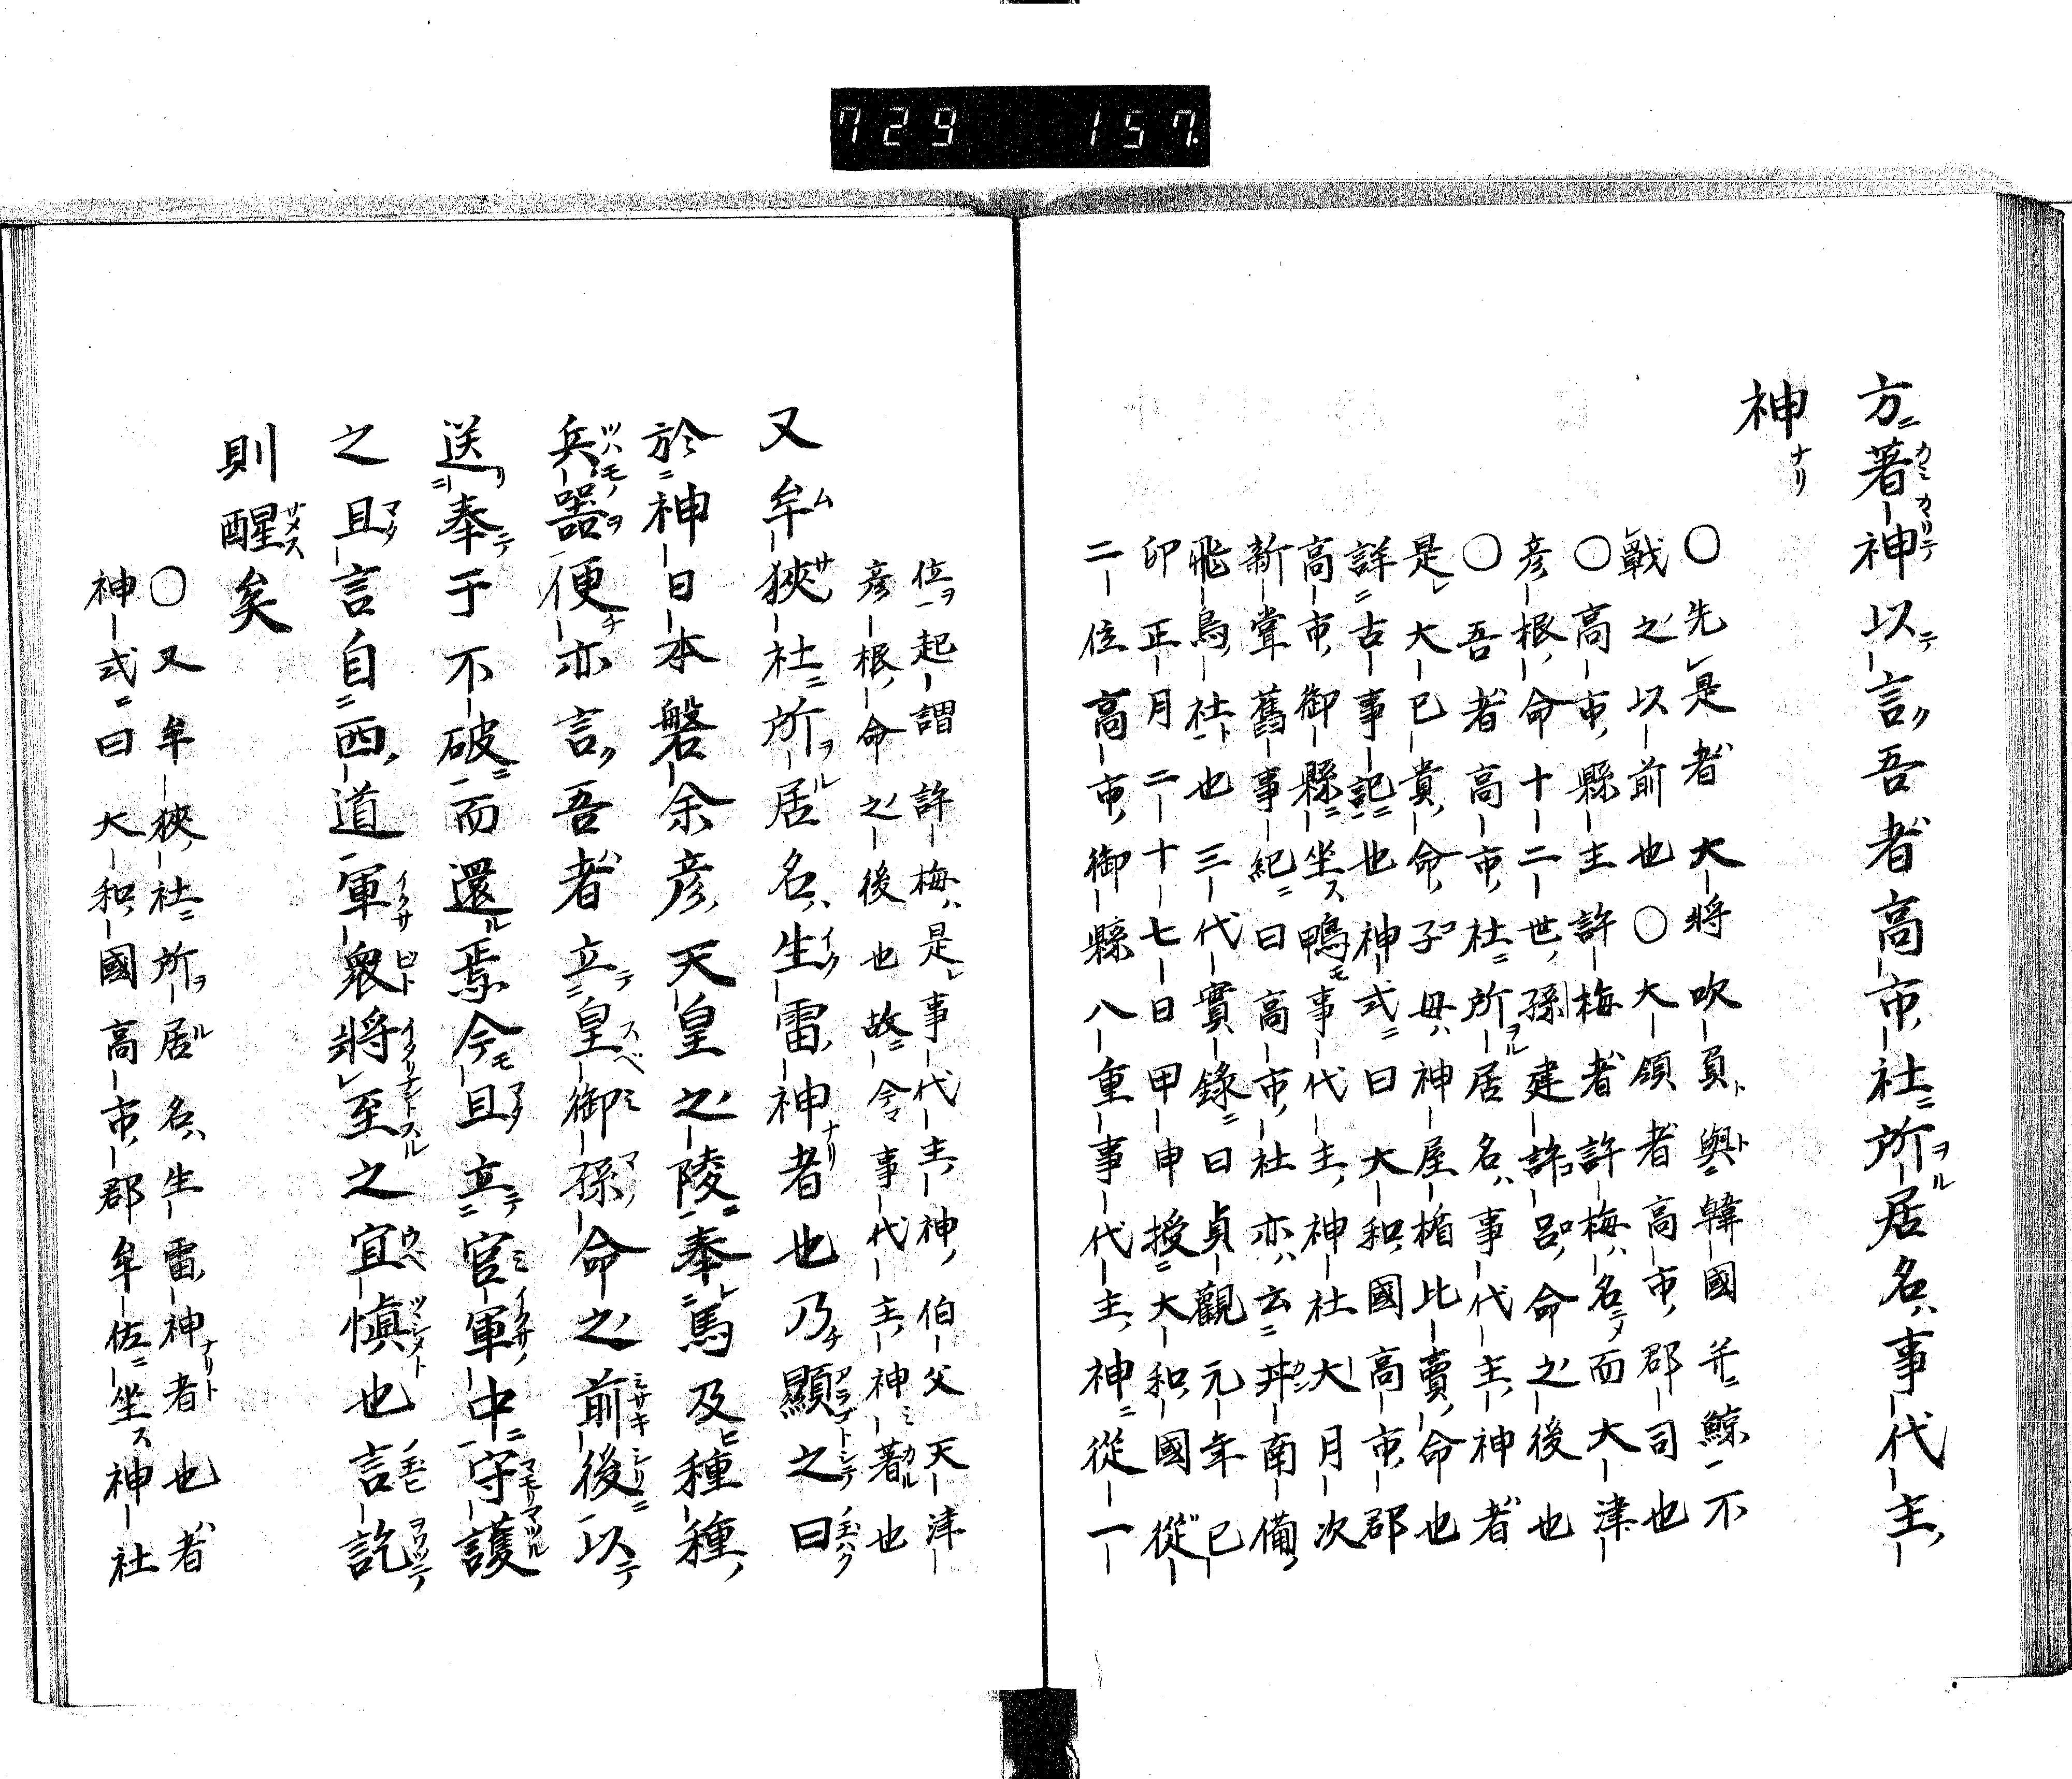 729 157.
方著神以言吾者高市社所居名事代主
神
○先是者大將吹負與韓國并鯨不
戰之以前也○大領者高市郡司也
○高市縣主許梅者許梅名而大津
彦根命十二世孫建許呂命之後也
○吾者高市社所居名事代主神者
是大已貴命子母神屋楯比賣命也
詳古事記也神式曰大和國高市郡
高市御縣坐鴨事代主神社大月次
新嘗舊事紀曰高市社亦云井南備
飛鳥社也三代實錄曰貞觀元年已
卯正月二十七日甲申授大和國從
二位高市御縣八重事代主神從一
位起謂許梅是事代主神伯父天津
彦根命之後也故令事代主神著也
又牟狹社所居名生雷神者也乃顯之曰
於神日本磐余彦天皇之陵奉馬及種種
兵器便亦言吾者立皇御孫命之前後以
送奉于不破而還焉今且立官軍中守護
之且言自西道軍衆將至之宜愼也言訖
則醒矣
○又牟狹社所居名生雷神者也者
神式曰大和國高市郡牟佐坐神社